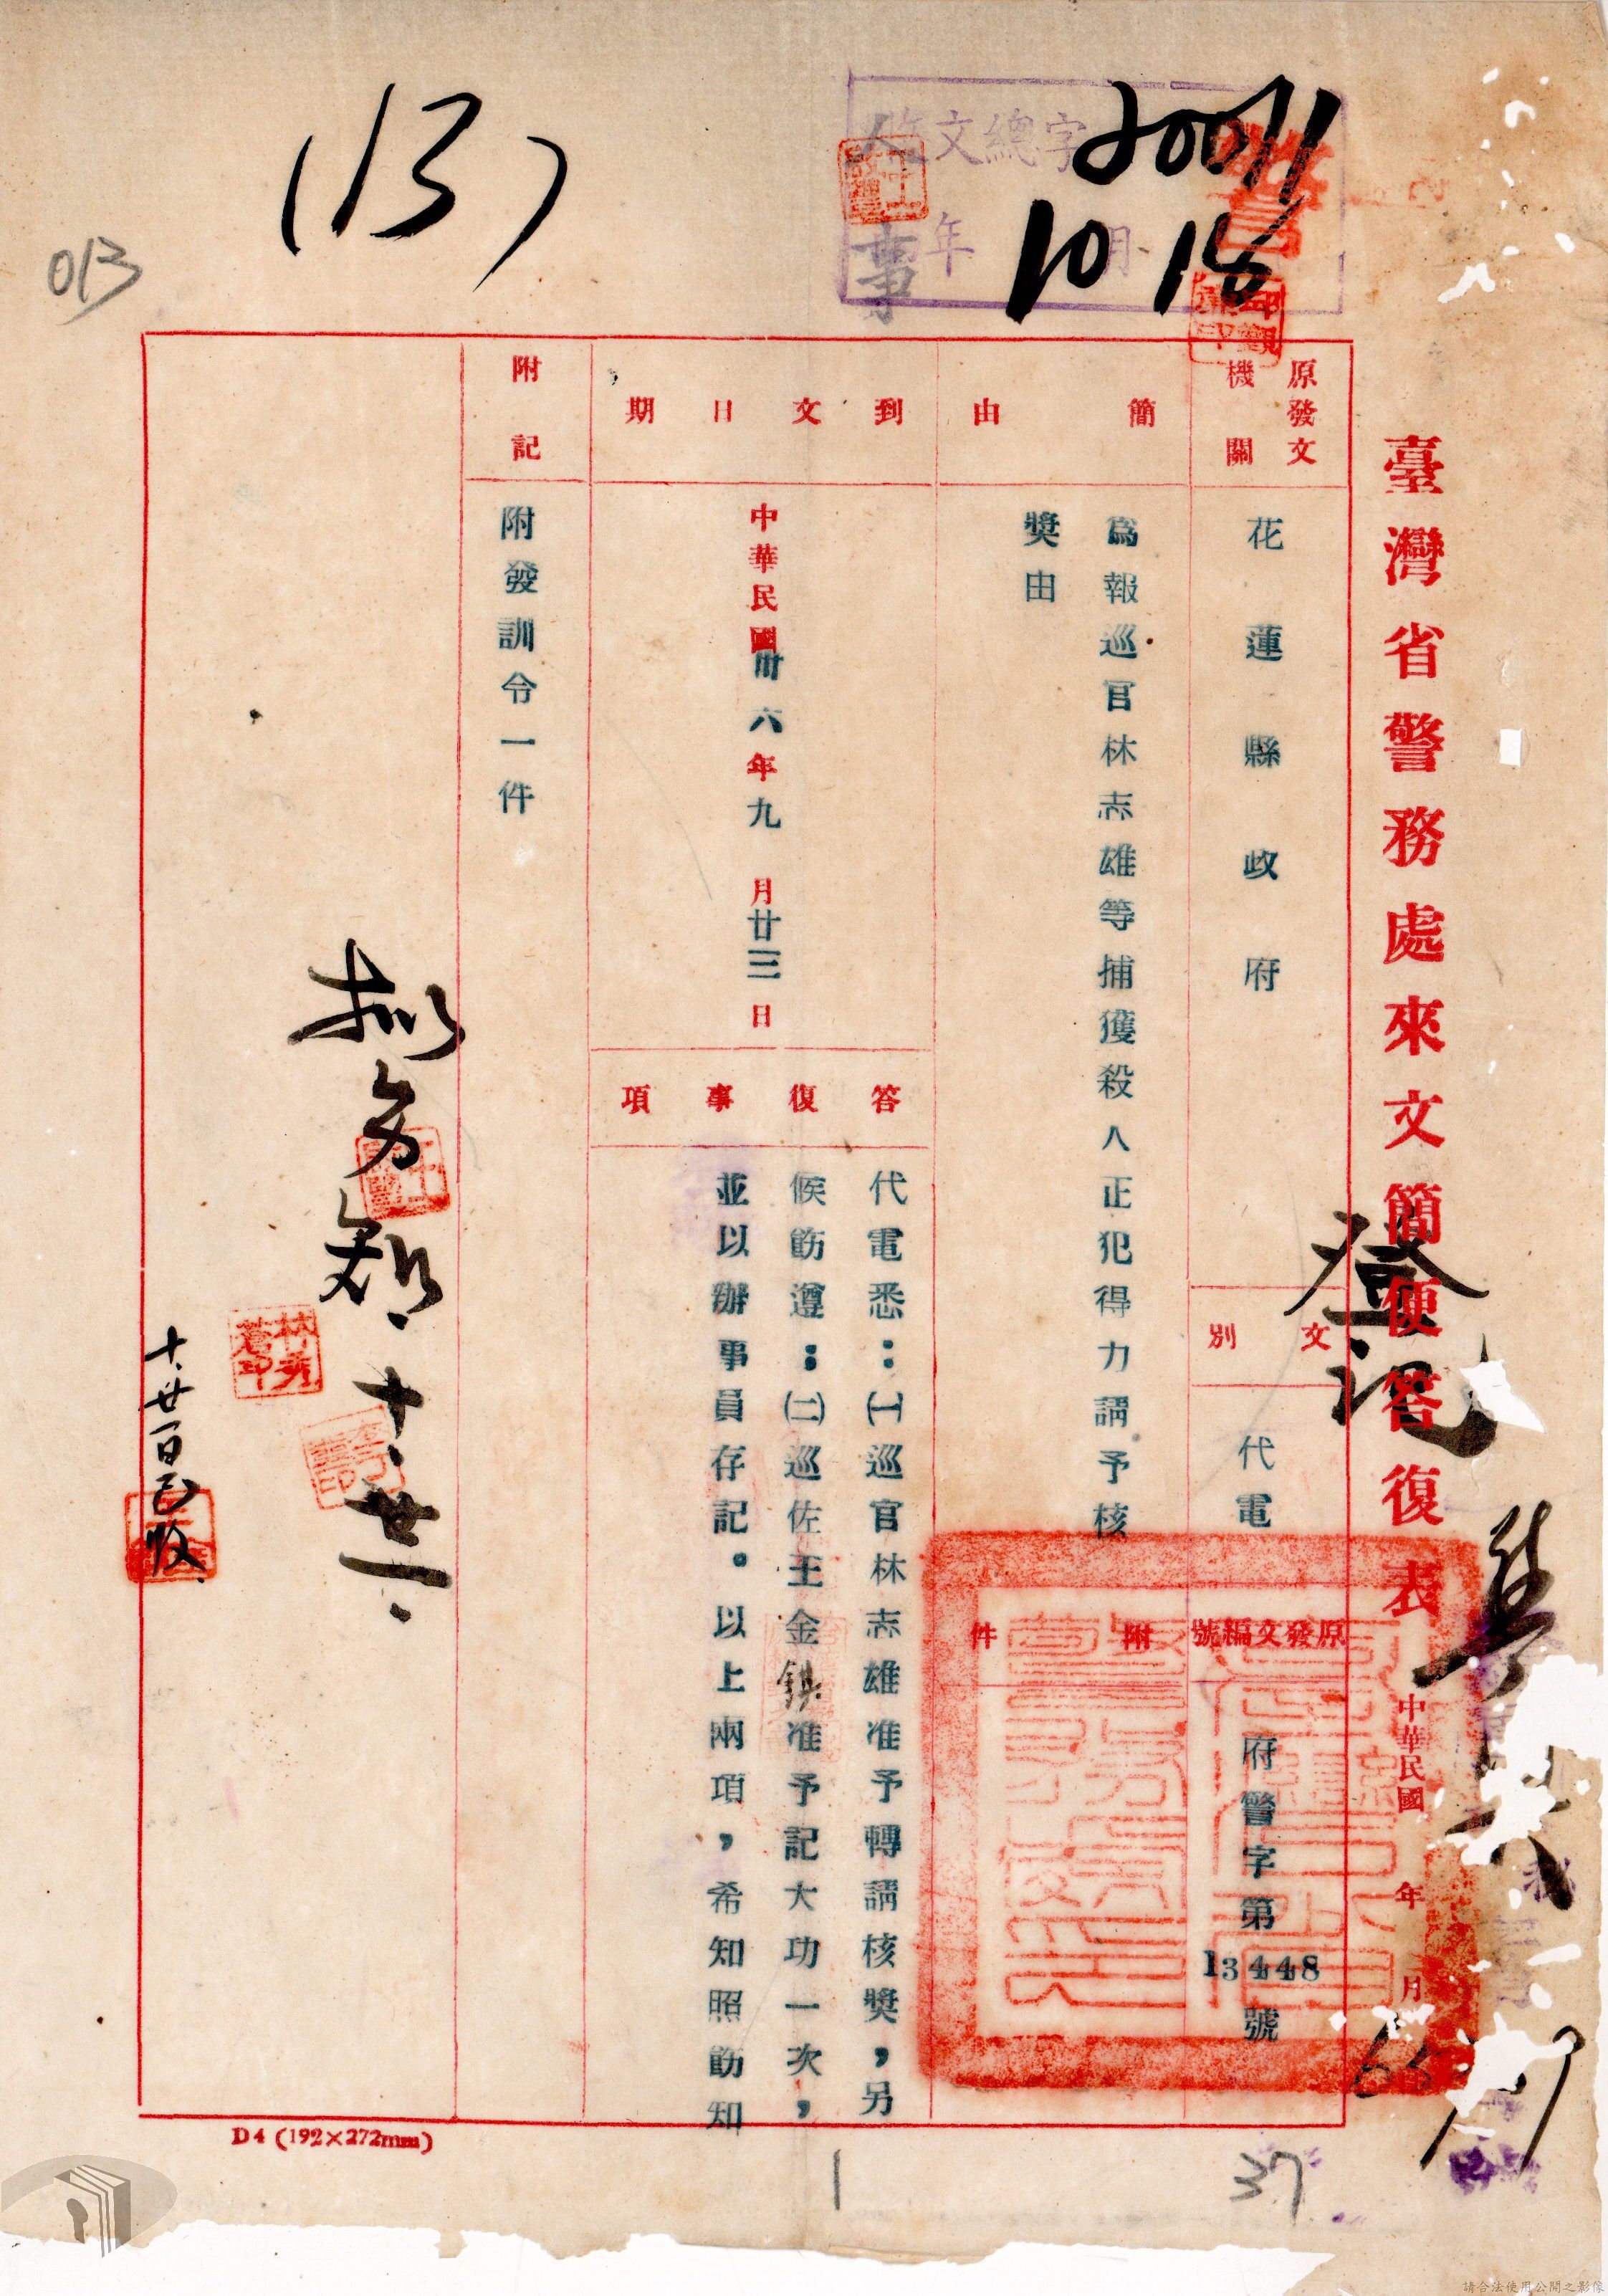 (13)
013
收文總字
20011
年 月
10 18
人事
臺灣省警務處來文簡便答復表
中華民國 年 月
登記
原發文機關
花蓮縣政府
文別
代電
原發文編號
府警字第13448號
簡由
為報巡官林志雄等捕獲殺人正犯得力請予核
獎由
附件
到文日期
中華民國卅六年九月廿三日
答復事項
代電悉：㈠巡官林志雄准予轉請核獎，另
候飭遵；㈡巡佐王金鉄准予記大功一次，
並以辦事員存記。以上兩項，希知照飭知
附記
附發訓令一件
擬分知．十．廿一．
十.廿一日已收
D4 (192×272mm)
1
37
請合法使用公開之影像